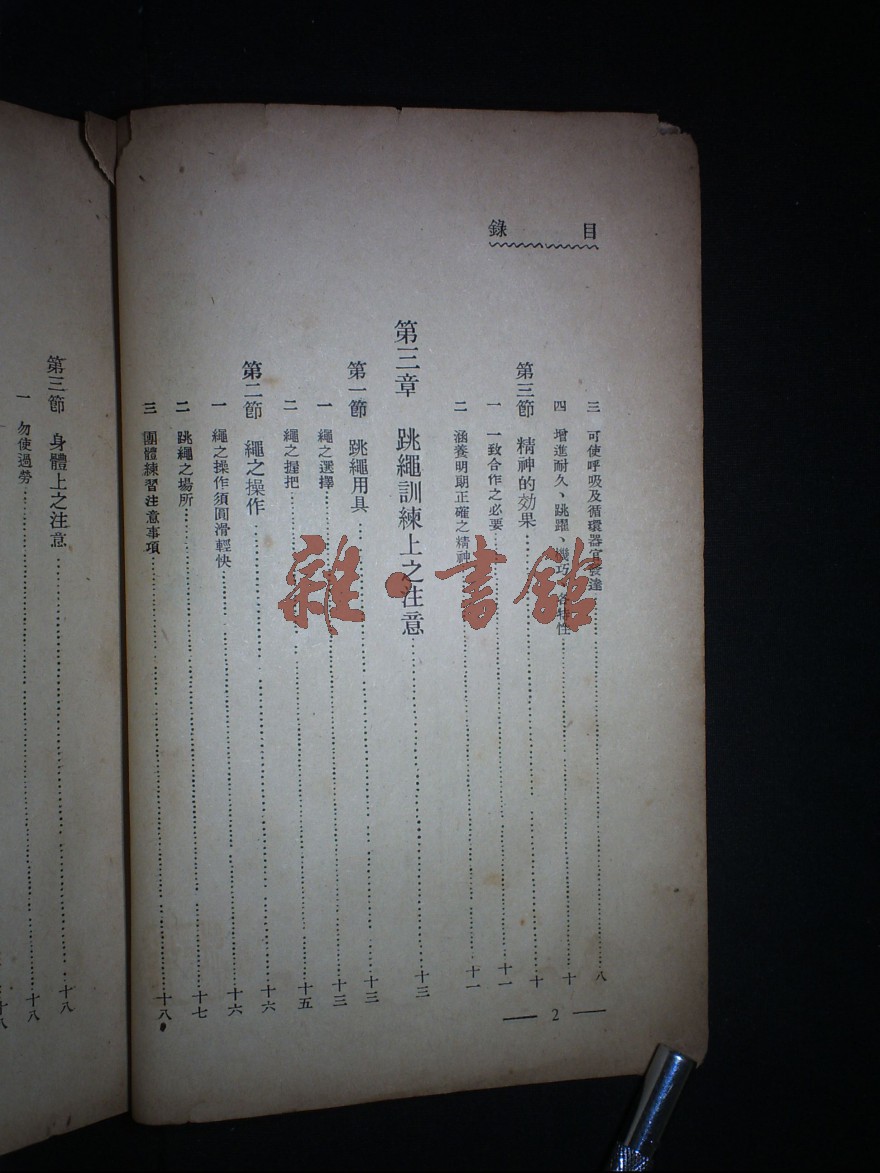 目錄
三 可使呼吸及循環器官發達 八
四 增進耐久、跳躍、機巧、各特性 十
第三節 精神的效果 十
一 一致合作之必要 十一
二 涵養明期正確之精神 十一
第三章 跳繩訓練上之注意 十三
第一節 跳繩用具 十三
一 繩之選擇 十三
二 繩之握把 十五
第二節 繩之操作 十六
一 繩之操作須圓滑輕快 十六
二 跳繩之場所 十七
三 團體練習注意事項 十八
— 2 —
第三節 身體上之注意 十八
一 勿使過勞 十八
十八
雜·書館